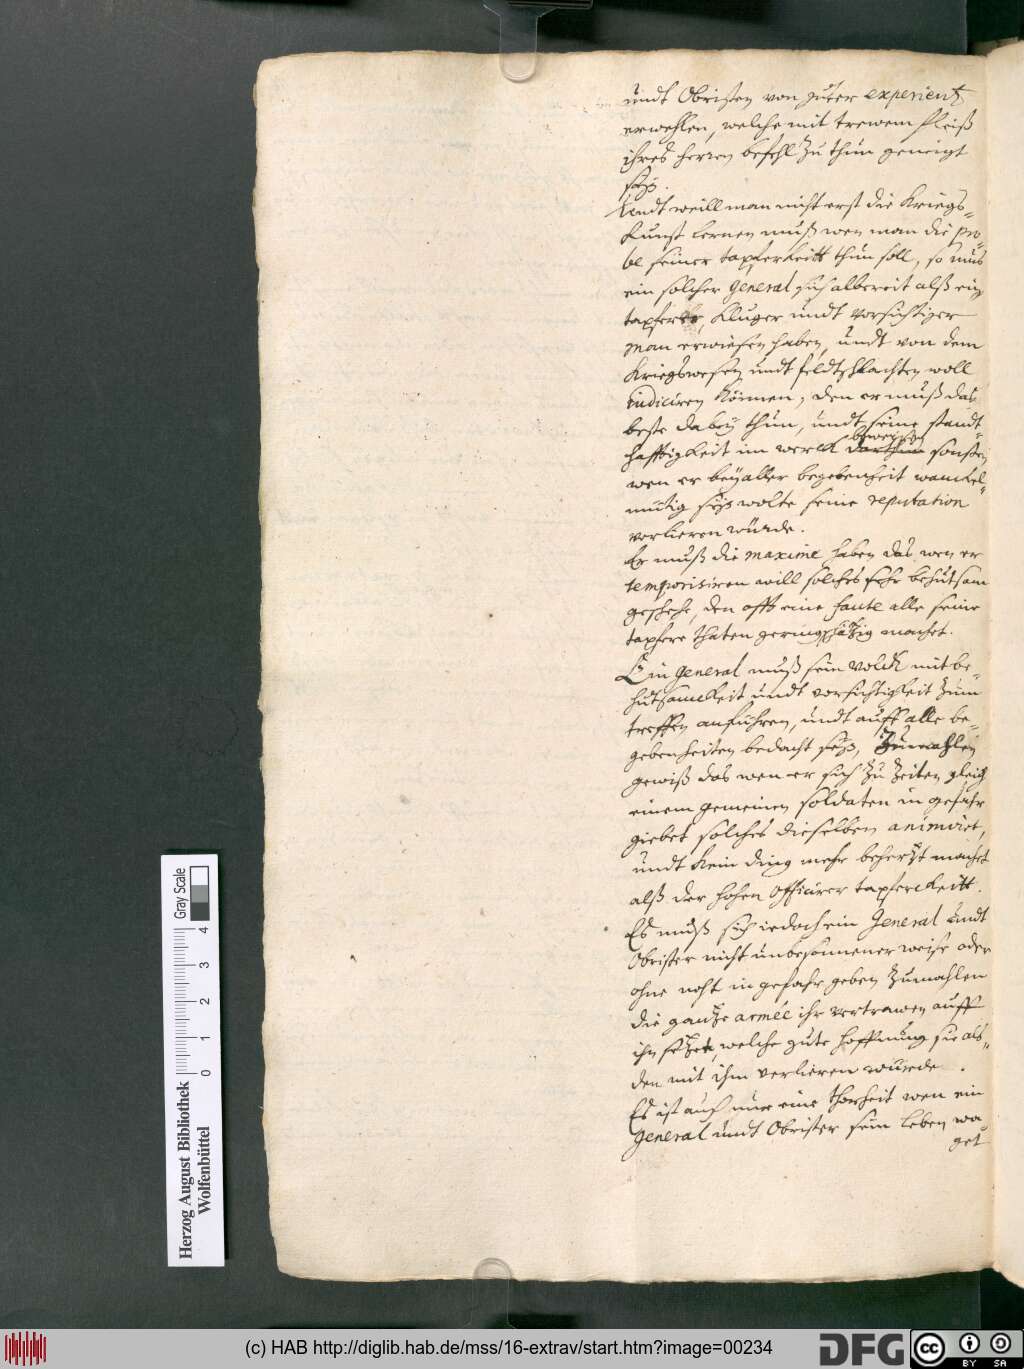 undt Obristen von guter experientz
erwehlen, welche mit trewem fleiß
ihres herren befehl zu thun geneigt
seÿn.
Undt weill man nicht erst die Kriegs-
Kunst lernen muß wen man die pro-
be seiner tapferkeitt thun soll, so mus
ein solcher General sich albereit alß ein
tapferer, kluger undt vorsichtiger
Man erwiesen haben, undt von dem
Kriegswesen undt feldtschlachten woll
judiciren können, den er muß das
beste dabeÿ thun, undt seine standt-
hafftigkeit im werck darthun beweisen sonsten
wen er beÿ aller begebenheit wanckel-
mütig seÿn wolte seine reputation
verlieren würde.
Er muß die maxime haben das wen er
temporisiren will solches sehr behutsam
geschehe, den offt eine faute alle seine
tapfere thaten geringschätzig machet.
Ein General muß sein Volck mit be-
hutsamkeit undt vorsichtigkeit zum
treffen anführen, undt auff alle be-
gebenheiten bedacht seÿn, Zumahlen
gewiß das wen er sich zu Zeiten gleich
einem gemeinen soldaten in gefahr
giebet solches dieselben animiret,
undt kein ding mehr behertzt machet
alß der hohen Officirer tapferckeitt.
Es muß sich iedoch ein General undt
Obrister nicht unbesonnener weise oder
ohne noht in gefahr geben Zumahlen
die gantze armée ihr vertrawen auff
ihn setzet, welche gute hoffnung sie als-
den mit ihm verlieren würde.
Es ist auch nur eine thorheit wen ein
General undt Obrister sein leben wa-
get
Gray Scale
0 1 2 3 4
Herzog August Bibliothek
Wolfenbüttel
(c) HAB http://diglib.hab.de/mss/16-extrav/start.htm?image=00234
DFG
cc BY SA